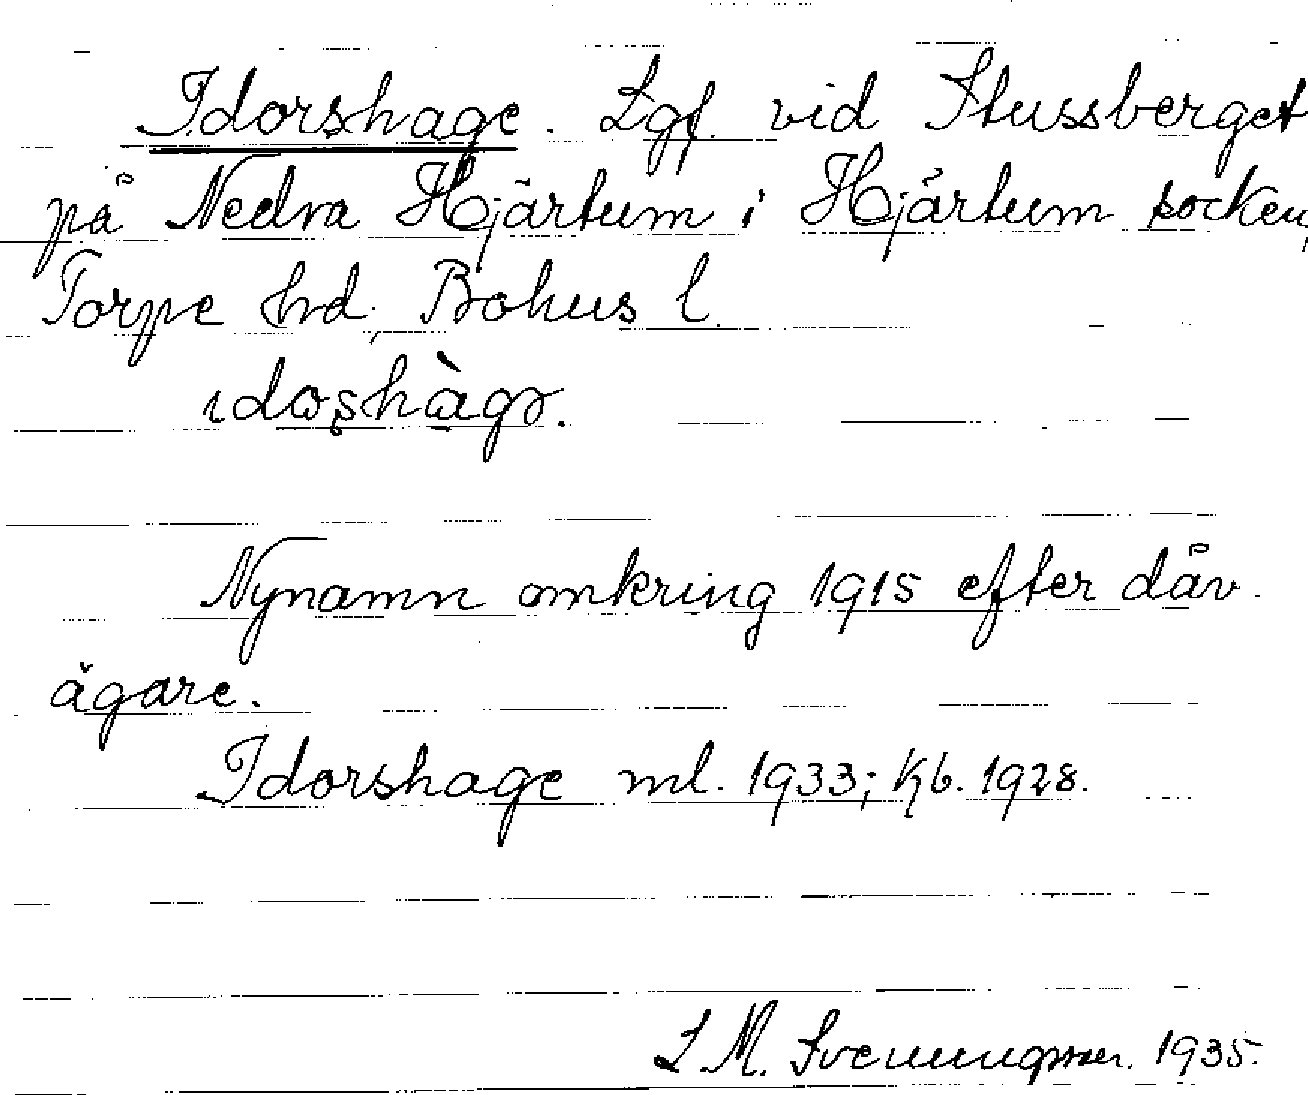 Idorshage. Lgf. vid Stussberget
på Nedra Hjärtum i Hjärtum socken,
Torpe hrd, Bohus l.
ɩdoʂhàgə.
Nynamn omkring 1915 efter dåv.
ägare.
Idorshage ml. 1933; Kb. 1928.
L. M. Svenungsson. 1935.